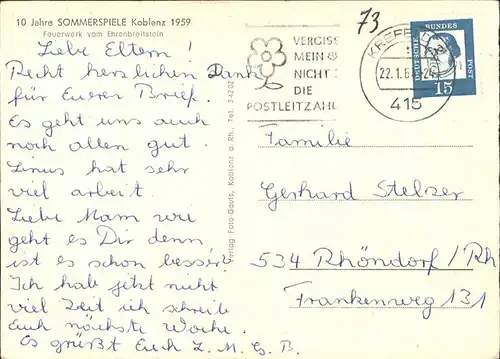 10 Jahre SOMMERSPIELE Koblenz 1959
Feuerwerk vom Ehrenbreitstein
Liebe Eltern!
Recht herzlichen Dank
für Eueren Brief.
Es geht uns auch
noch allen gut.
Linus hat sehr
viel arbeit.
Liebe Mam wie
geht es Dir denn
ist es schon besser?
Ich hab jetzt nicht
viel Zeit ich schreibe
Euch nächste Woche.
Es grüßt Euch L. M. G. B.
Verlag Foto-Gauls, Koblenz a. Rh., Tel. 34202
73
VERGISS
MEIN
NICHT
DIE
POSTLEITZAHL
KREFELD
22.1.6
-24
415
DEUTSCHE BUNDES POST
15
Familie
Gerhard Stelzer
534 Rhöndorf/Rh
Frankenweg 131